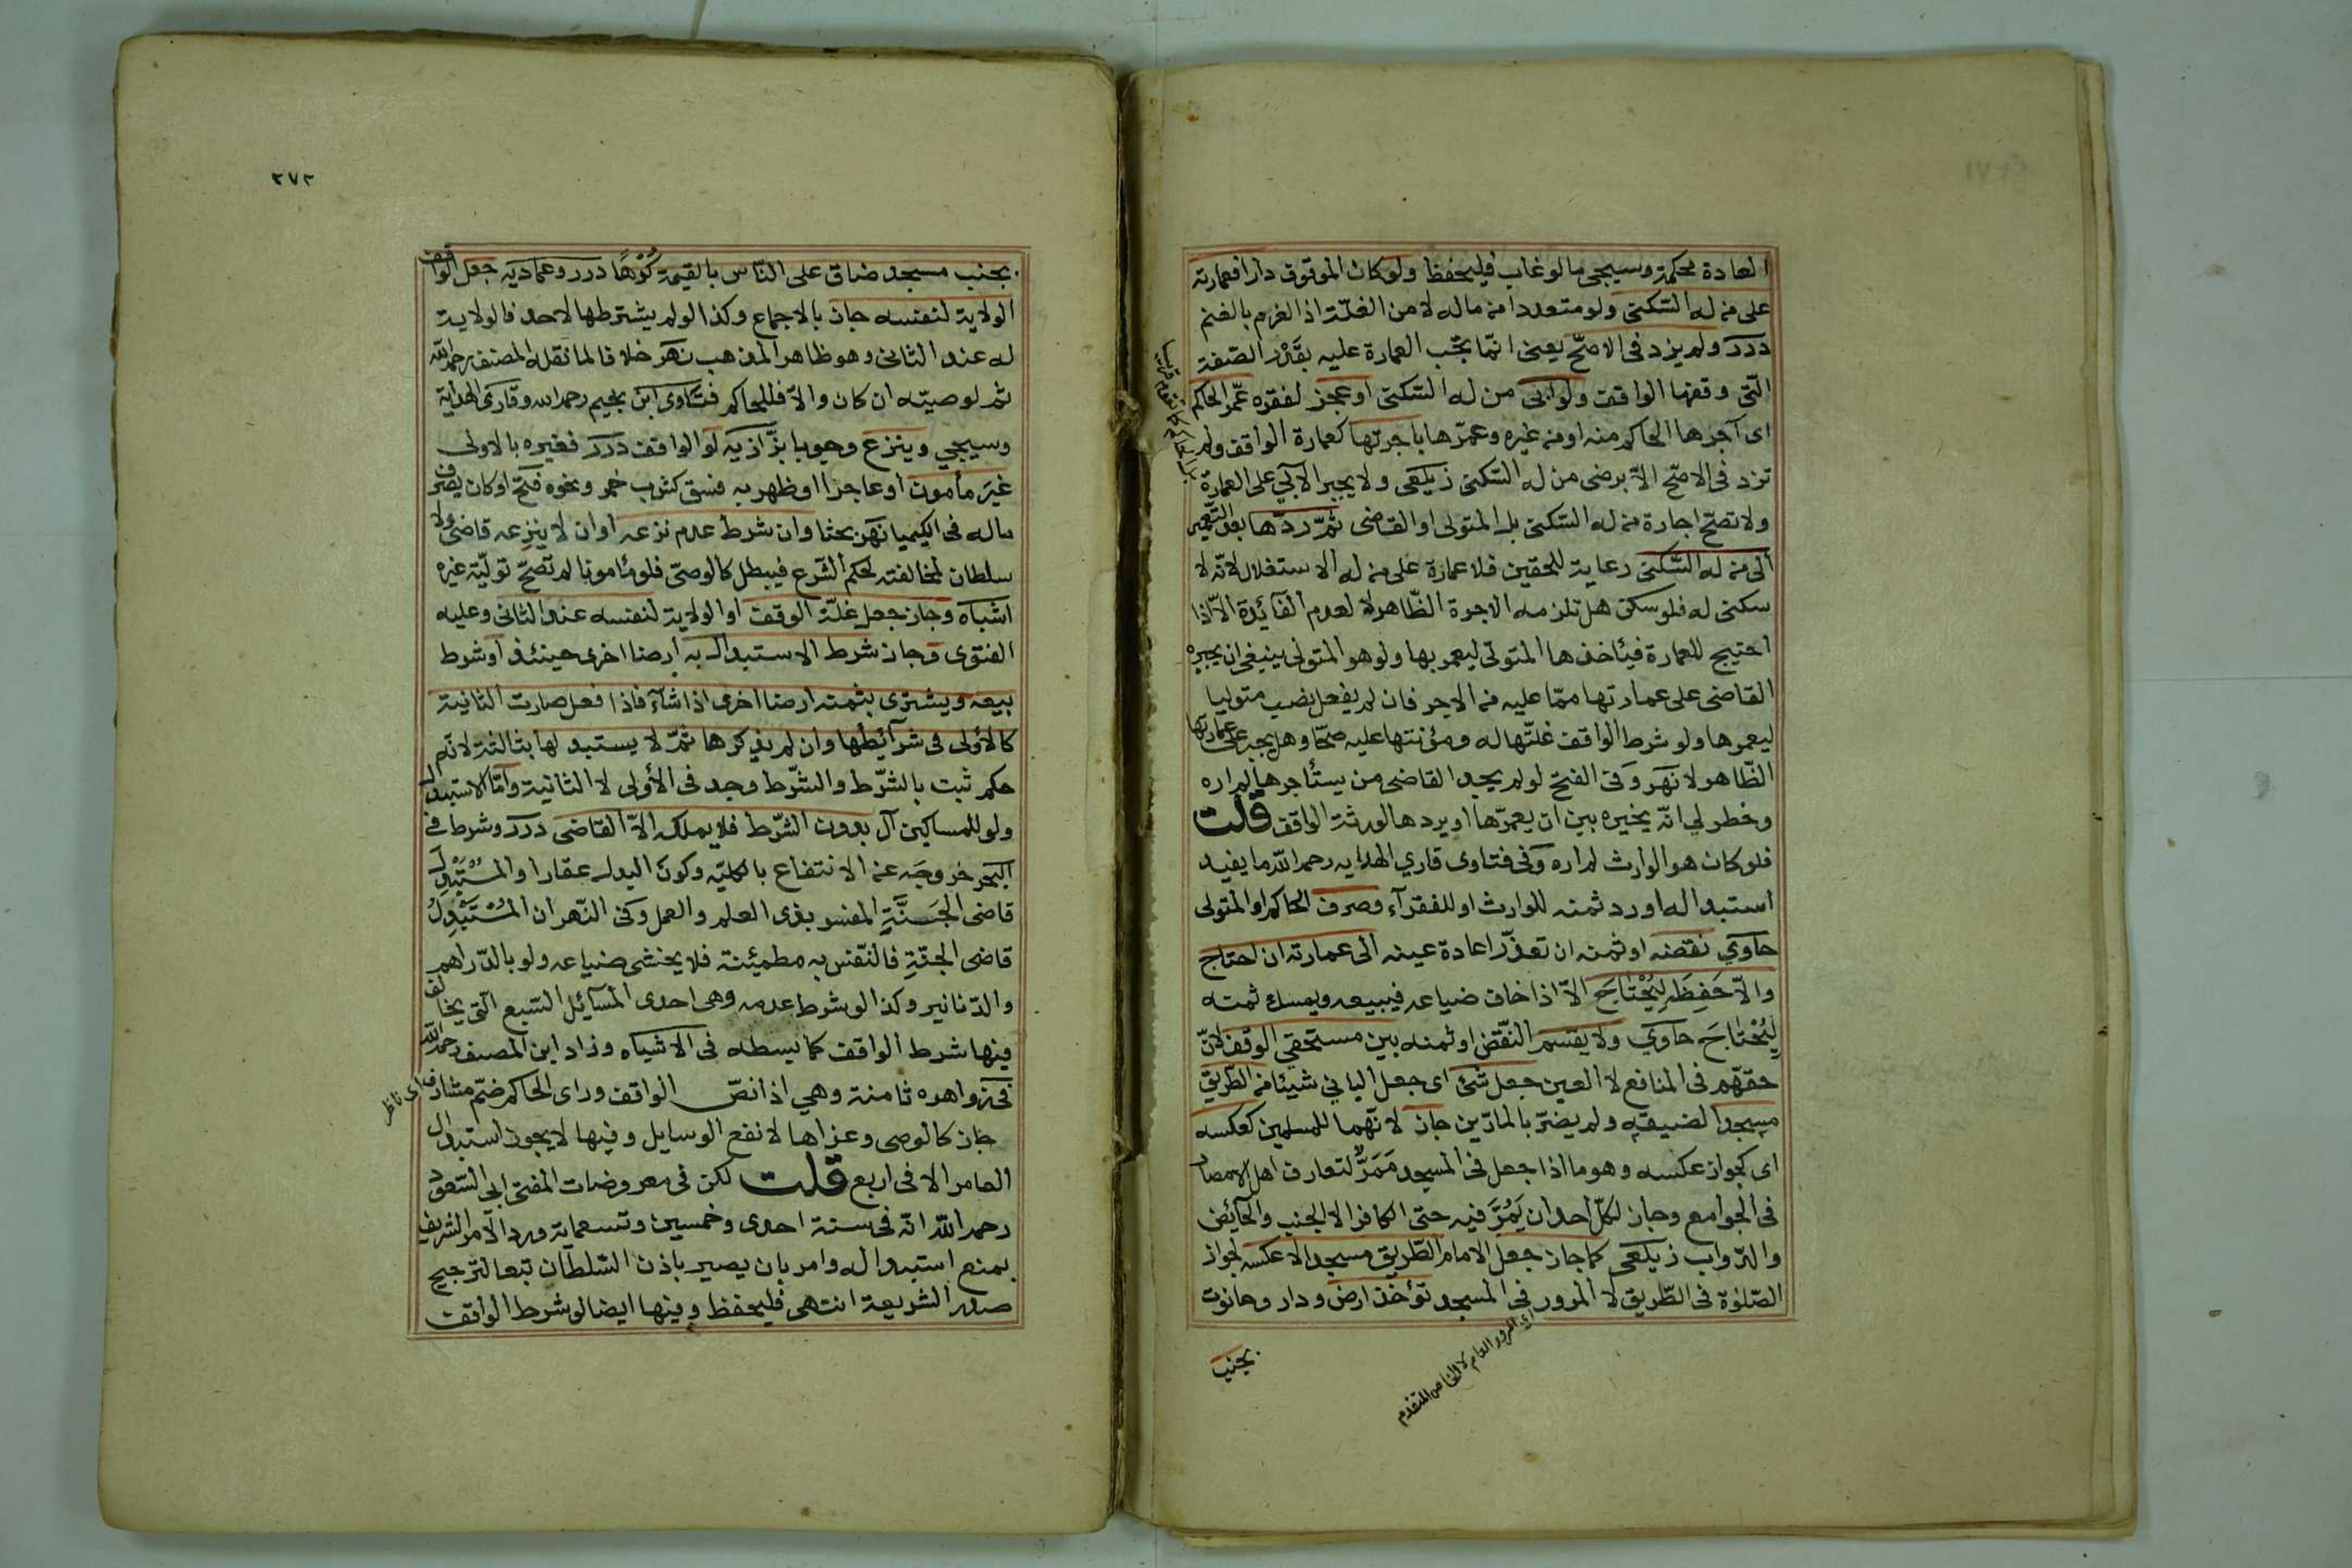 العادة محكمة وسيجى مالوغاب فليحفظ ولوكان الموقوف دارا فعمارته
على من له السّكنى ولو متعددا من ماله لا من الغلّة اذ الغرم بالغنم
درر ولم يزد فى الاصحّ يعنى انّما تجّب العمارة عليه بقَدْر الصّفة
الّتى وقفها الواقف ولو ابى من له السّكنى او عجز لفقره عمّر الحاكم
اى آجرها الحاكم منه او من غيره وعمّرها باجرتها كعمارة الواقف ولم
تزد فى الاصّح الاّ برضى من له السّكنى زيلعى ولا يجبر الآبى على العمارة
ولا تصحّ اجارة من له السّكنى بل المتولى او القاضى ثمّ ردّها بعد التّعمير
الى من له السّكنى رعاية للحقين فلا عمارة على من له الاستغلال لانّه لا
سكنى له فلو سكن هل تلزمه الاجرة الظّاهر لا لعدم الفآئدة الاّ اذا
احتيج للعمارة فيأخذها المتولّى ليعمر بها ولو هو المتولى ينبغى ان يجبره
القاضى على عمارتها ممّا عليه من الاجر فان لم يفعل نصب متوليا
ليعمرها ولو شرط الواقف غلّتها له ومؤنتها عليه صحّا وهل يجبر على عمارتها
الظّاهر لا نهر وفى الفتح لو لم يجد القاضى من يستأجرها لم اره
وخطر لي انّه يخيره بين ان يعمرّها او يردها لورثة الواقف قلت
فلو كان هو الوارث لم اره وفى فتاوى قاري الهدايه رحمه اللّه ما يفيد
استبداله او رد ثمنه للوارث او للفقرآء وصرف الحاكم او المتولى
حاوي نقضه او ثمنه ان تعذّر اعادة عينه الى عمارته ان احتاج
والاّ حَفِظَه لِيُحْتَاجَ الاّ اذا خاف ضياعه فيبيعه ويمسك ثمنه
لِيُحْتَاجَ حاوي ولا يقسم النّقض او ثمنه بين مستحقي الوقف لانّ
حقهّم فى المنافع لا العين جعل شئ اى جعل البانى شيئا من الطّريق
مسجدا لضيقه ولم يضرّ بالمارّين جاز لانّهما للمسلمين كعكسه
اى كجواز عكسه وهو ما اذا جعل فى المسجد مَمَرٌّ لتعارف اهل الامصار
فى الجوامع وجاز لكلّ احد ان يَمُرَّ فيه حتى الكافر الا الجنب والحآئض
والدّواب زيلعى كما جاز جعل الامام الطّريق مسجدا لا عكسه لجواز
الصّلوة فى الطّريق لا المرور فى المسجد تؤخذ ارض ودار وحانوت
بجنب
اى المرور العام لا الخاص المتقدم
٢٧٢
بجنب مسجد ضاق على النّاس بالقيمة كُرْهًا درر وعماديه جعل الواقف
الولاية لنفسه جاز بالاجماع وكذا لو لم يشترطها لاحد فالولاية
له عند الثانى وهو ظاهر المذهب نهر خلافا لما نقله المصنف رحمه اللّه
ثم لوصيّه ان كان والاّ فللحاكم فتاوى ابن نجيم رحمه الله وقارى الهداية
وسيجي وينزع وجوبا بزّازيه لو الواقف درر فغيره بالاولى
غير مأمون او عاجزا او ظهر به فسق كشرب خمر ونحوه فتح او كان يصرف
ماله فى الكيميا نهر بحثا وان شرط عدم نزعه او ان لا ينزعه قاض ولا
سلطان لمخالفته لحكم الشّرع فيبطل كالوصىّ فلو مأمونا لم تصحّ توليّة غيره
اشباه وجاز جعل غلّة الوقف او الولاية لنفسه عند الثانى وعليه
الفتوى وجاز شرط الاستبدال به ارضا اخرى حينئذ او شرط
بيعه ويشترى بثمنه ارضا اخرى اذا شآء فاذا فعل صارت الثانية
كالأولى فى شرآئطها وان لم يذكرها ثمّ لا يستبدلها بثالثة لانّه
حكم ثبت بالشّرط والشّرط وجد فى الأولى لا الثانية وامّا الاستبدال
ولو للمساكين آل بدون الشّرط فلا يملكه الاّ القاضى درر وشرط فى
البحر خروجَه عن الانتفاع بالكليّه وكون البدل عقارا والمُسْتَبْدِل
قاضى الجَنّةِ المفسر بذى العلم والعمل وفى النّهر ان المُسْتَبْدِلُ
قاضى الجنّةِ فالنّفس به مطمئنة فلا يخشى ضياعه ولو بالدّراهم
والدّنانير وكذا لو شرط عدمه وهى احدى المسآئل السّبع الّتى يخالف
فيها شرط الواقف كما بسطه فى الاشباه وزاد ابن المصنف رحمه اللّه
فى زواهره ثامنة وهي اذا نصّ الواقف وراى الحاكم ضمّ مشارف اى ناظر
جاز كالوصى وعزاها لانفع الوسايل وفيها لا يجوز استبدال
العامر الا فى اربع قلت لكن فى معروضات المفتى ابى السّعود
رحمه اللّه انّه فى سنة احدى وخمسين وتسعماية ورد الامر الشّريف
بمنع استبداله وامر بان يصير باذن السّلطان تبعا لترجيح
صدر الشريعة انتهى فليحفظ وفيها ايضا لو شرط الواقف